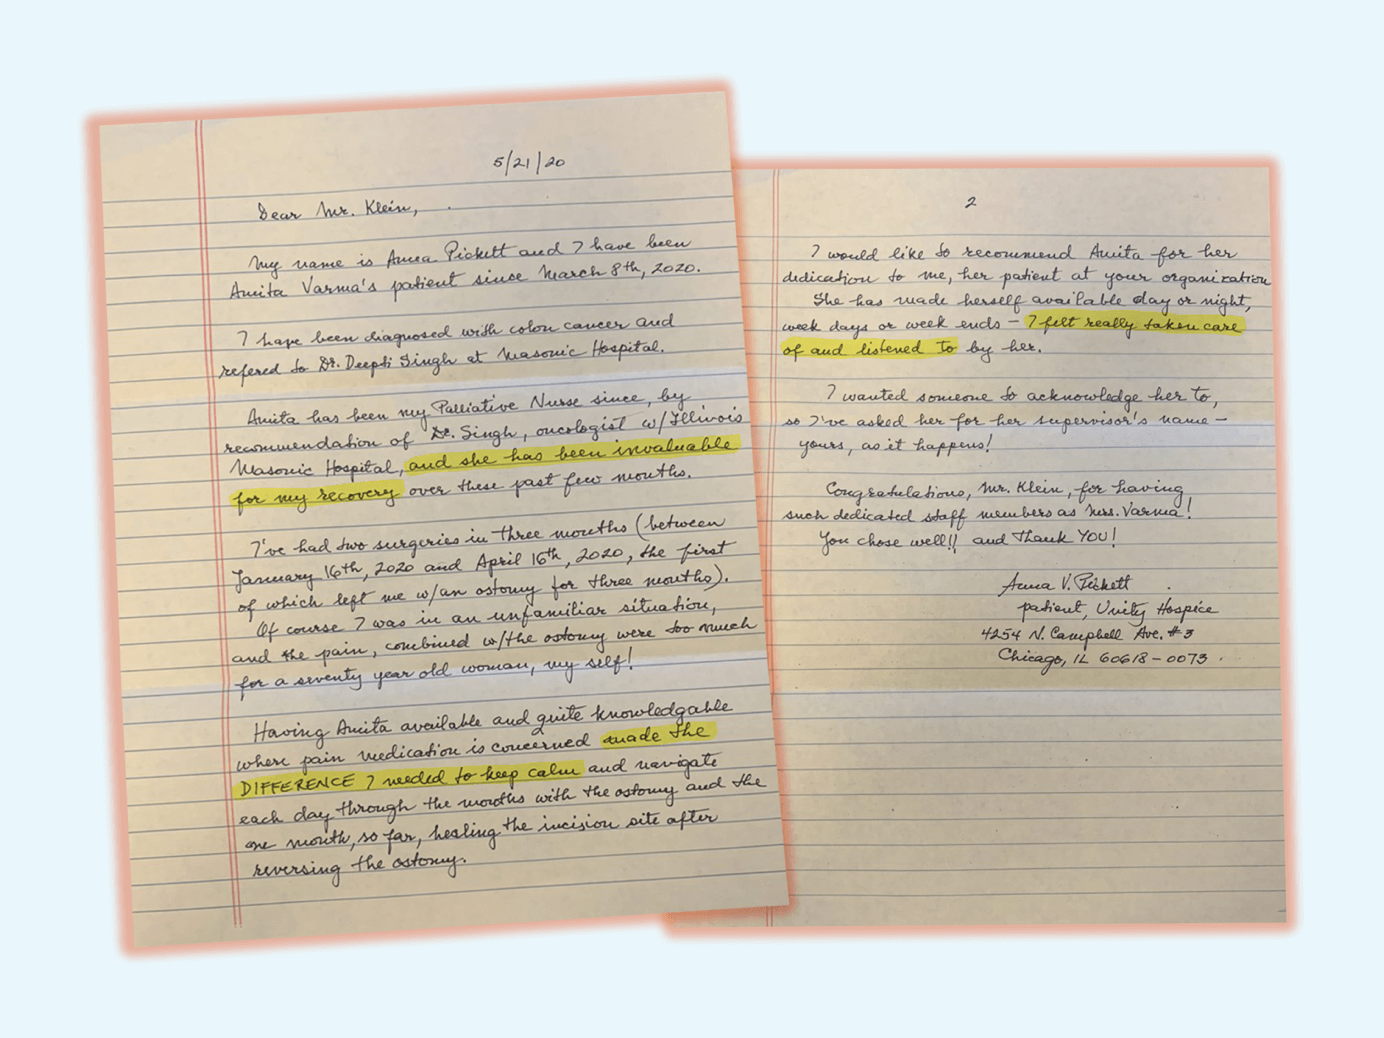 5/21/20
Dear Mr. Klein,
My name is Anna Pickett and I have been
Amita Varma's patient since March 8th, 2020.
I have been diagnosed with colon cancer and
refered to Dr. Deepti Singh at Masonic Hospital.
Amita has been my Palliative Nurse since, by
recommendation of Dr. Singh, oncologist w/Illinois
Masonic Hospital, and she has been invaluable
for my recovery over these past few months.
I've had two surgeries in three months (between
January 16th, 2020 and April 16th, 2020, the first
of which left me w/an ostomy for three months).
Of course I was in an unfamiliar situation,
and the pain, combined w/the ostomy were too much
for a seventy year old woman, my self!
Having Amita available and quite knowledgable
where pain medication is concerned made the
DIFFERENCE I needed to keep calm and navigate
each day through the months with the ostomy and the
one month, so far, healing the incision site after
reversing the ostomy.
2
I would like to recommend Amita for her
dedication to me, her patient at your organization
She has made herself available day or night,
week days or week ends – I felt really taken care
of and listened to by her.
I wanted someone to acknowledge her to,
so I've asked her for her supervisor's name –
yours, as it happens!
Congratulations, Mr. Klein, for having
such dedicated staff members as Mrs. Varma!
You chose well!! and Thank YOU!
Anna V. Pickett
patient, Unity Hospice
4254 N. Campbell Ave. #3
Chicago, IL 60618-0073